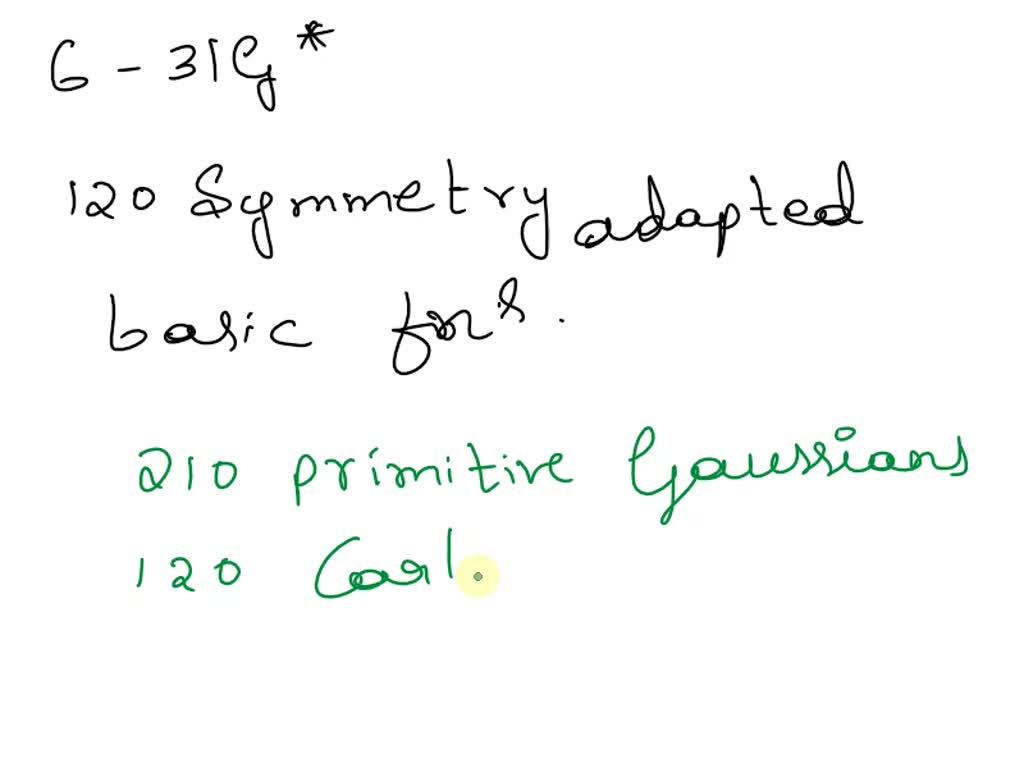 6-31G*
120 Symmetry adapted
basic fns.
210 primitive Gaussians
120 Car